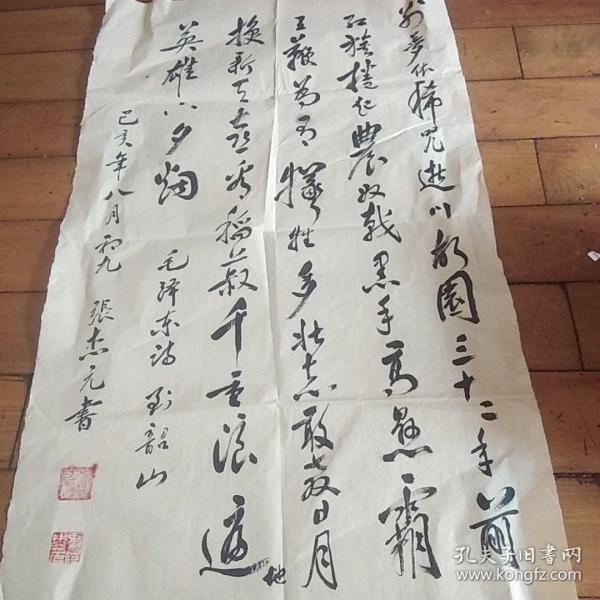 别梦依稀咒逝川故園三十二年前
红旗捲起農奴戟黑手高悬霸
主鞭为有犠牲多壮志敢教日月
换新天喜看稻菽千重浪遍地
英雄下夕烟
毛泽东诗到韶山
己亥年八月初九 張志元書
孔夫子旧书网
www.kongfz.com